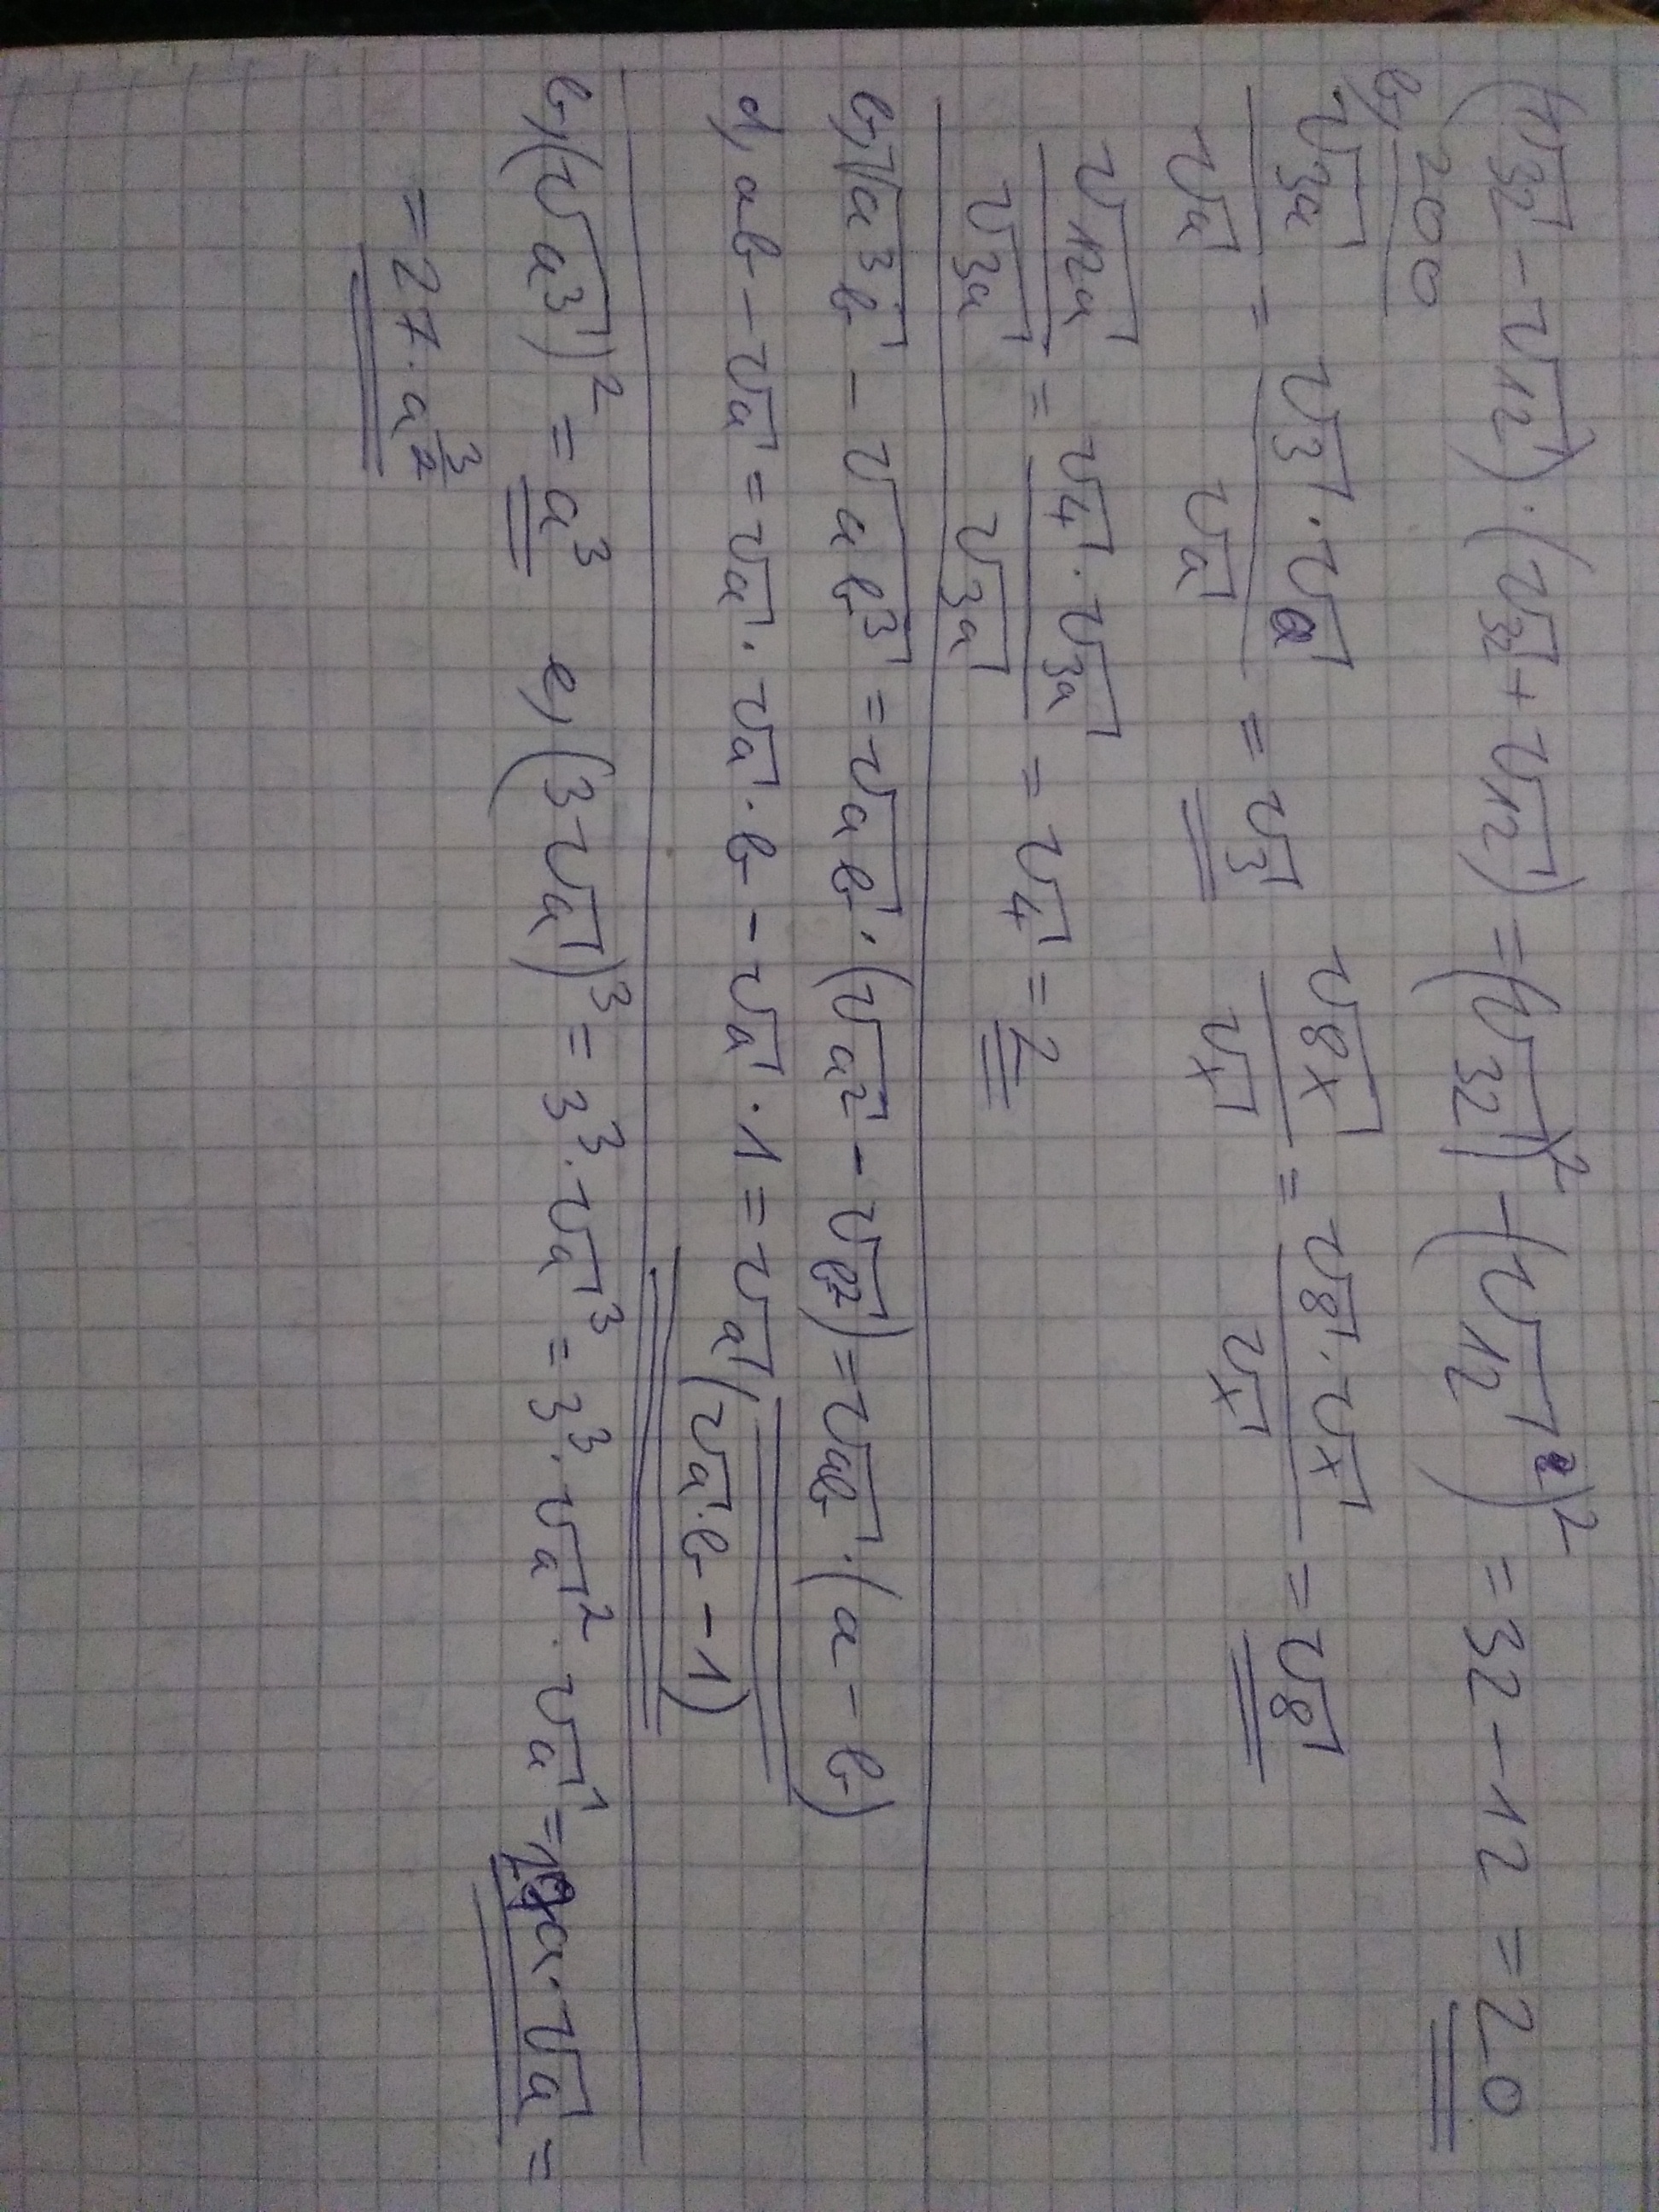 (√32 - √12) · (√32 + √12) = (√32)² - (√12)² = 32 - 12 = 20
b, 200
√3a/√a = √3 · √a/√a = √3   √8x/√x = √8 · √x/√x = √8
√12a/√3a = √4 · √3a/√3a = √4 = 2
b, √a³b - √ab³ = √ab · (√a² - √b²) = √ab · (a - b)
d, ab - √a = √a · √a · b - √a · 1 = √a (√a · b - 1)
b, (√a³)² = a³   e, (3√a)³ = 3³ · √a³ = 3³ · √a² · √a¹ = a · √a =
= 27 · a^(3/2)